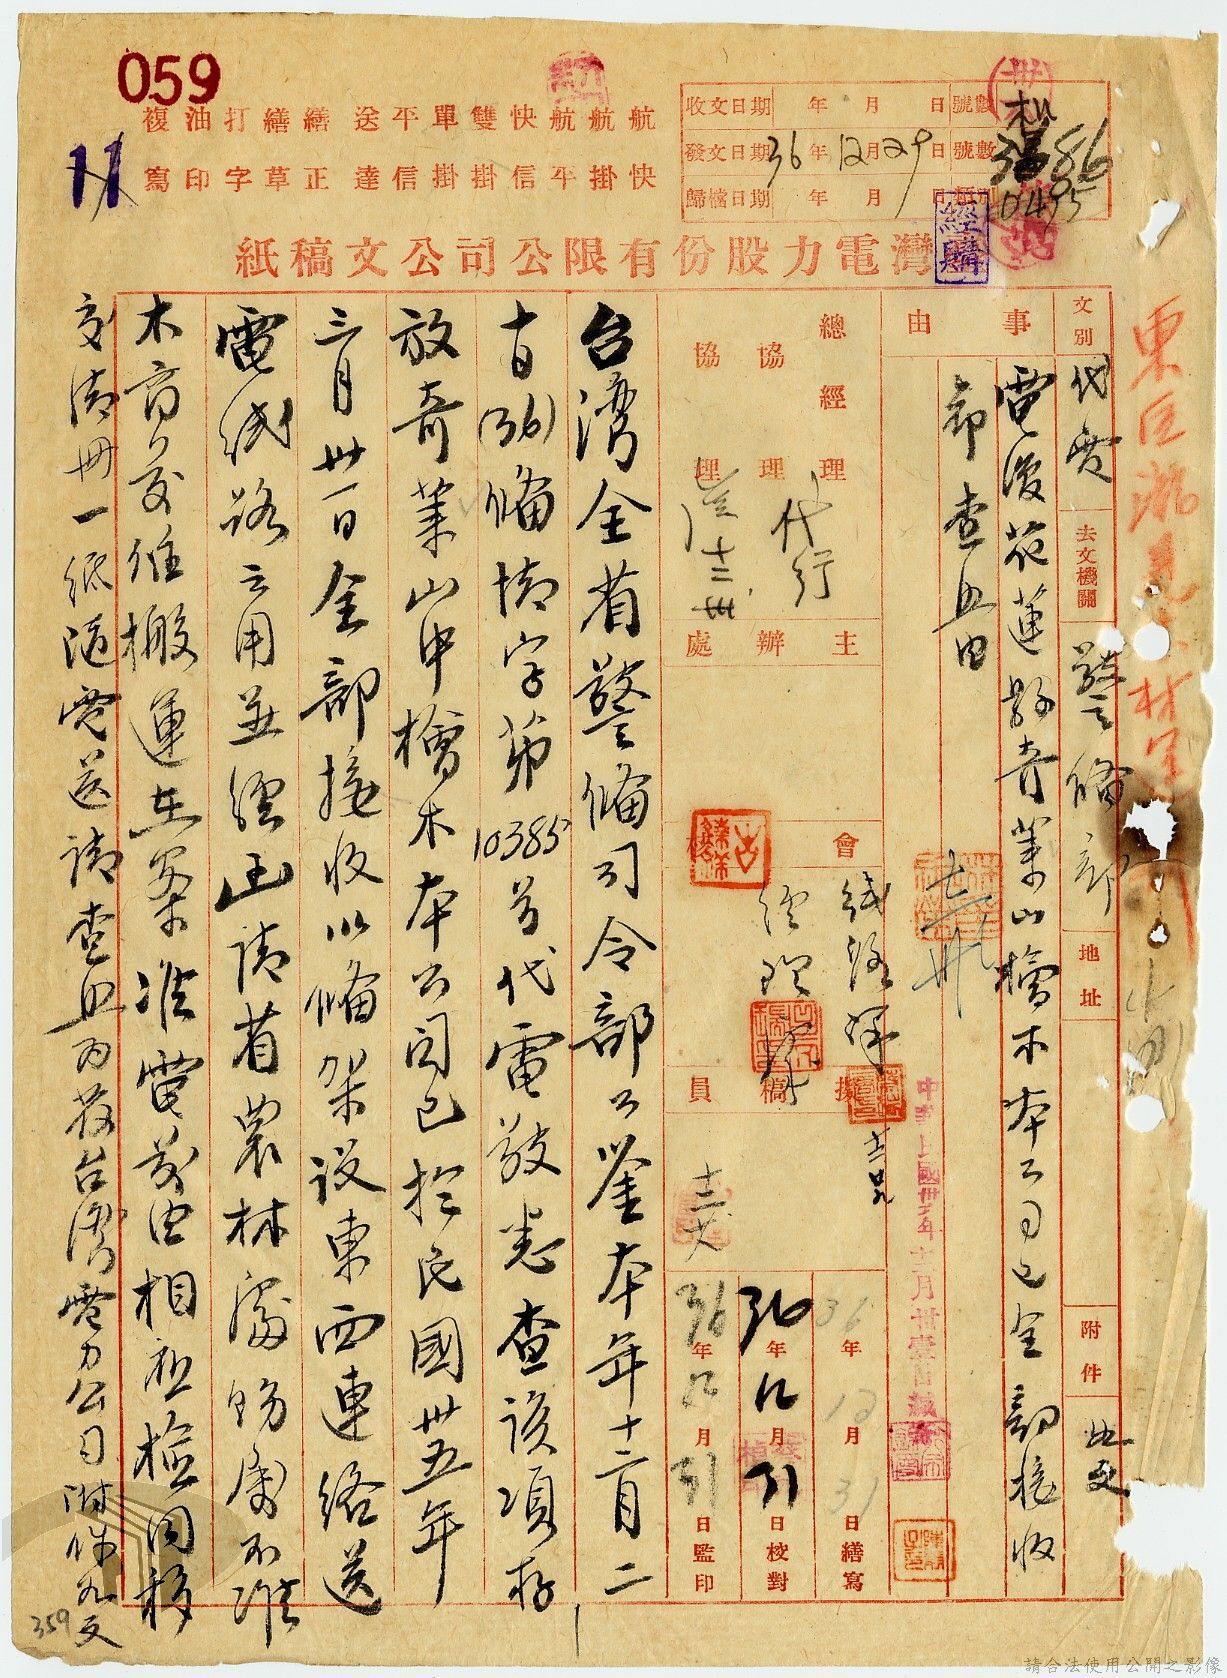 059
11
航 航 航 快 雙 單 平 送 繕 繕 打 油 複
快 掛 平 信 掛 掛 信 達 正 草 字 印 寫
收文日期 年 月 日 號數
發文日期 36年12月29日 號數
歸檔日期 年 月 日
0495
經購
灣電力股份有限公司公文稿紙
文別 代電
去文機關 警備部
地址
附件 如文
事由
電復花蓮縣奇萊山檜木本公司已全部接收
部查照由
總經理
協理 代行
協理
主辦處
會
線路課
經理
擬稿員
中華民國卅六年十二月卅壹日
36年12月31日繕寫
36年12月31日校對
36年12月31日監印
台湾全省警備司令部公鑒本年十二月二
十日(36)備情字第10385号代電敬悉查該項存
放奇萊山中檜木本公司已於民國卅五年
三月卅一日全部接收以備架設東西連絡送
電線路之用並經函請省農林處飭屬不准
木商及任搬運在案准電前由相應檢同移
交清冊一紙隨電送請查照為荷台灣電力公司附件如文
359
請合法使用公開之影像